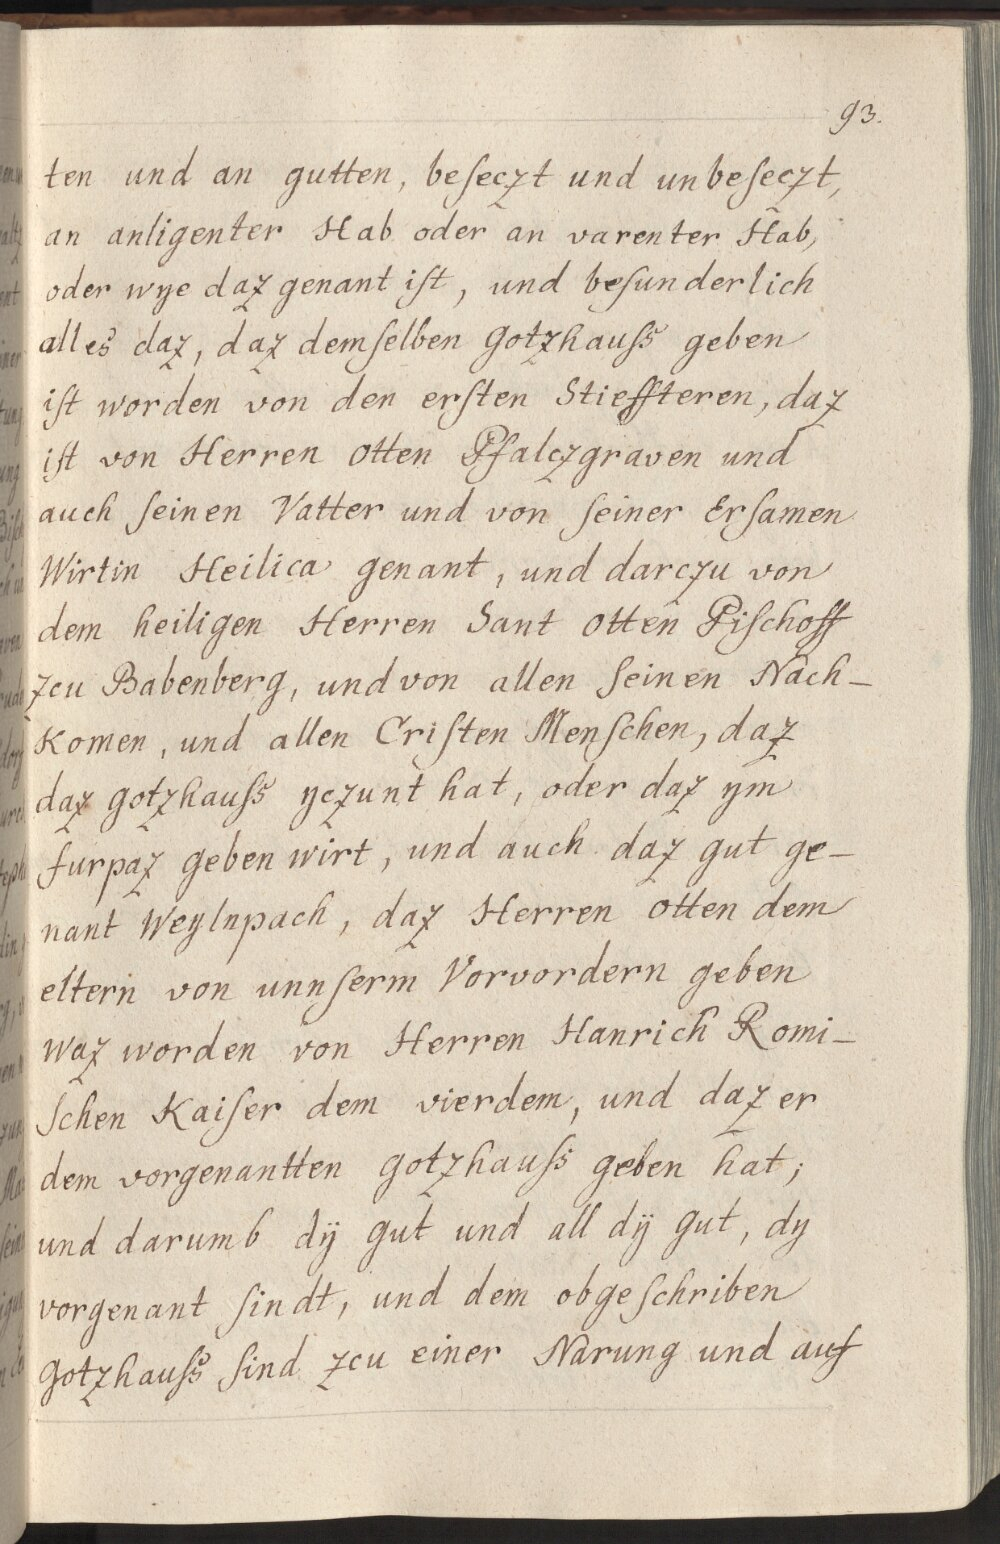 93.
ten und an gutten, beſeczt und unbeſeczt,
an anligenter Hab oder an varenter Hab,
oder wye daz genant iſt, und beſunderlich
alles daz, daz demſelben gotzhauſs geben
iſt worden von den erſten Stieffteren, daz
iſt von Herren Otten Pfalczgraven und
auch ſeinen Vatter und von ſeiner Erſamen
Wirtin Heilica genant, und darczu von
dem heiligen Herren Sant Otten Piſchoff
zcu Babenberg, und von allen ſeinen Nach-
Komen, und allen Criſten Menſchen, daz
daz gotzhauſs yczunt hat, oder daz ym
furpaz geben wirt, und auch daz gut ge-
nant Weylnpach, daz Herren Otten dem
eltern von unnſerm Vorvordern geben
waz worden von Herren Hanrich Romi-
ſchen Kaiſer dem vierdem, und daz er
dem vorgenantten gotzhauſs geben hat;
und darumb dÿ gut und all dÿ gut, dy
vorgenant ſindt, und dem obgeſchriben
gotzhauſs ſind zcu einer Narung und auf